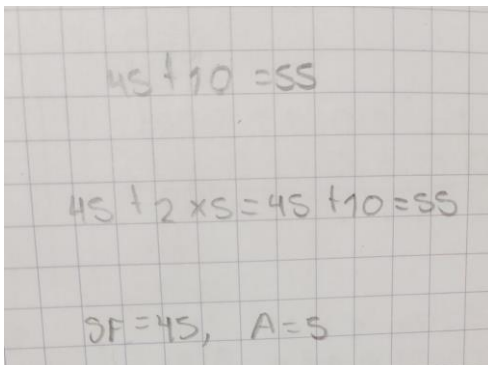 45 + 10 = 55
45 + 2 × 5 = 45 + 10 = 55
SF = 45, A = 5